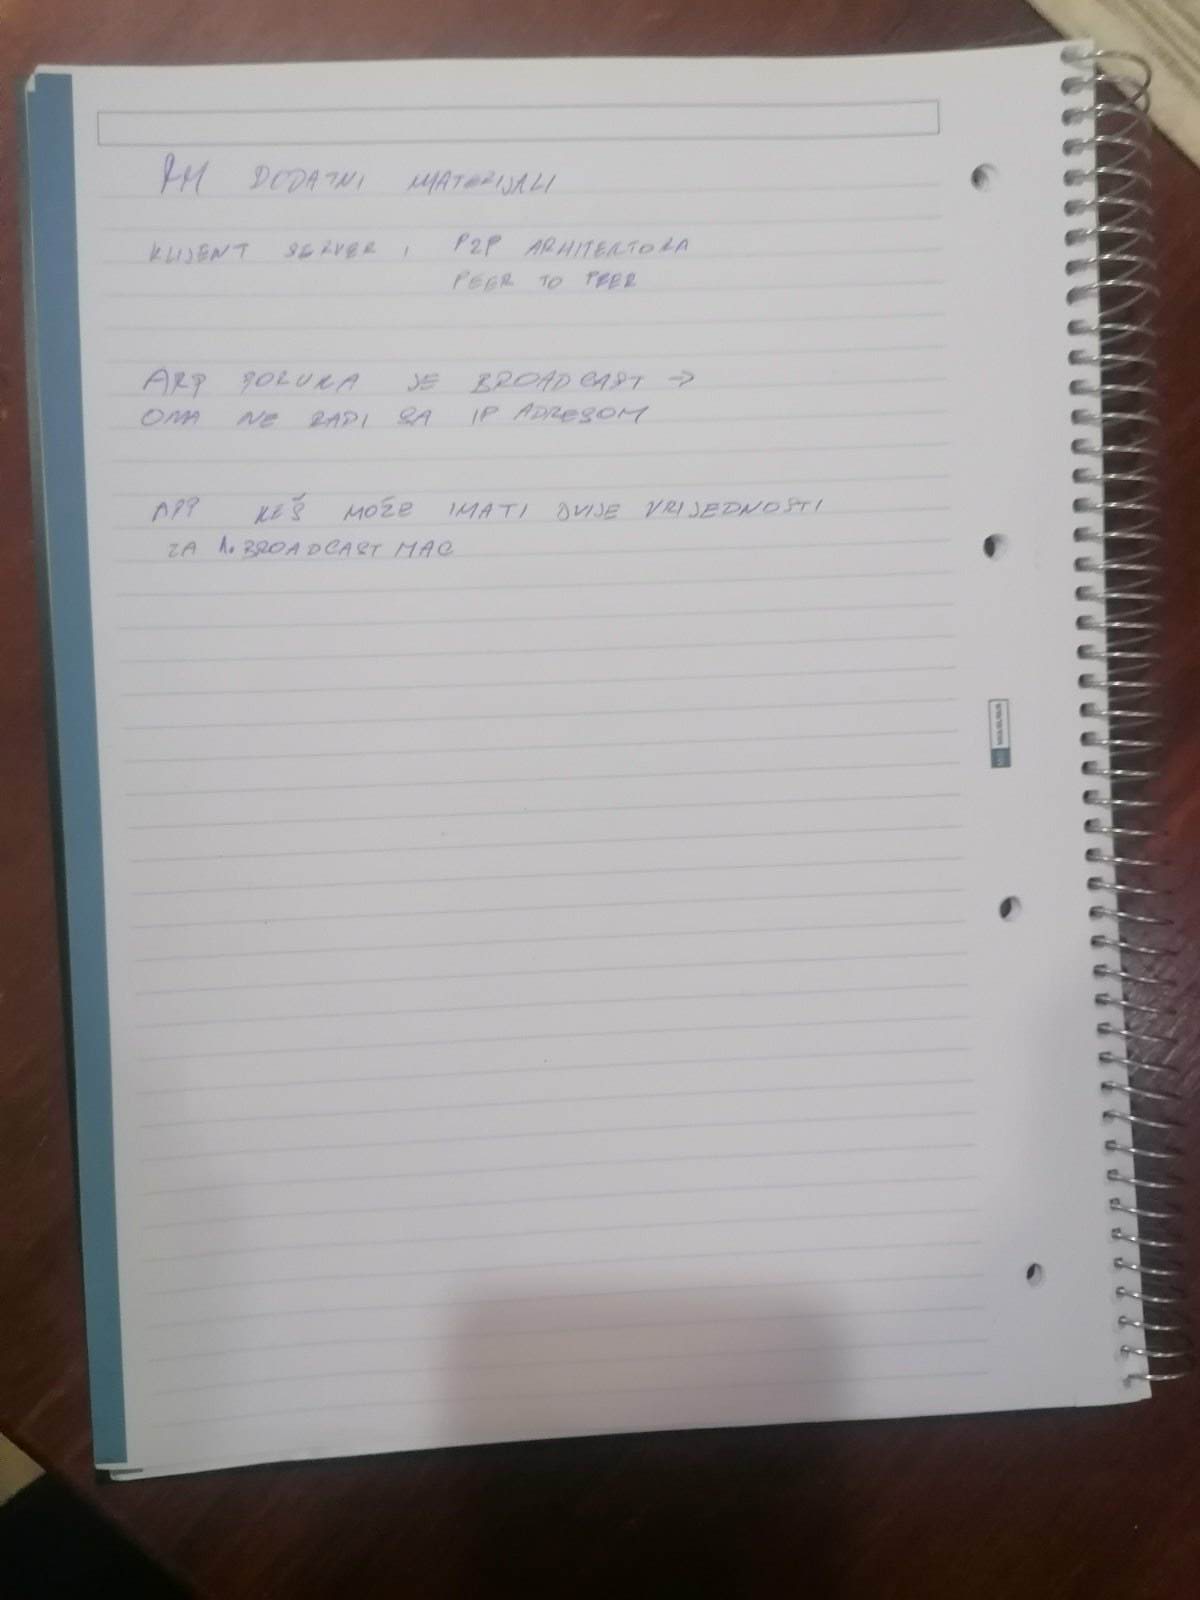 RM DODATNI MATERIJALI
KLIJENT SERVER, P2P ARHITEKTURA
PEER TO PEER
ARP PORUKA JE BROADCAST →
ONA NE RADI SA IP ADRESOM
ARP KEŠ MOŽE IMATI DVIJE VRIJEDNOSTI
ZA 1. BROADCAST MAC